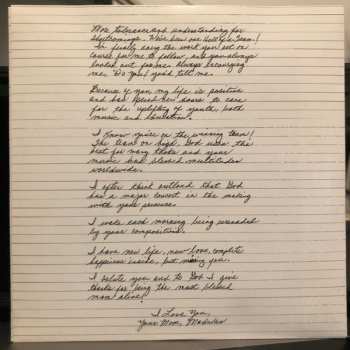 More tolerance and understanding for
shortcomings. We're been one Hell of a Team!
I'm finally doing the work you set on
course for me to follow, and you always
looked out for me. Always forgiving
me. "Do you" you'd tell me.
Because of you my life is positive
and has opened new doors to care
for the uplifting of youth, both
music and education.
I know you're on the winning team!
The team on high. God uses the
best for many tasks and your
music has blessed multitudes
worldwide.
I often think outland that God
has a major concert in the making
with your presence.
I wake each morning being serenaded
by your compositions.
I have new life, new love, complete
happiness inside, but missing you.
I salute you and to God I give
thanks for being the most blessed
mom alive!
I Love You,
Your Mom,